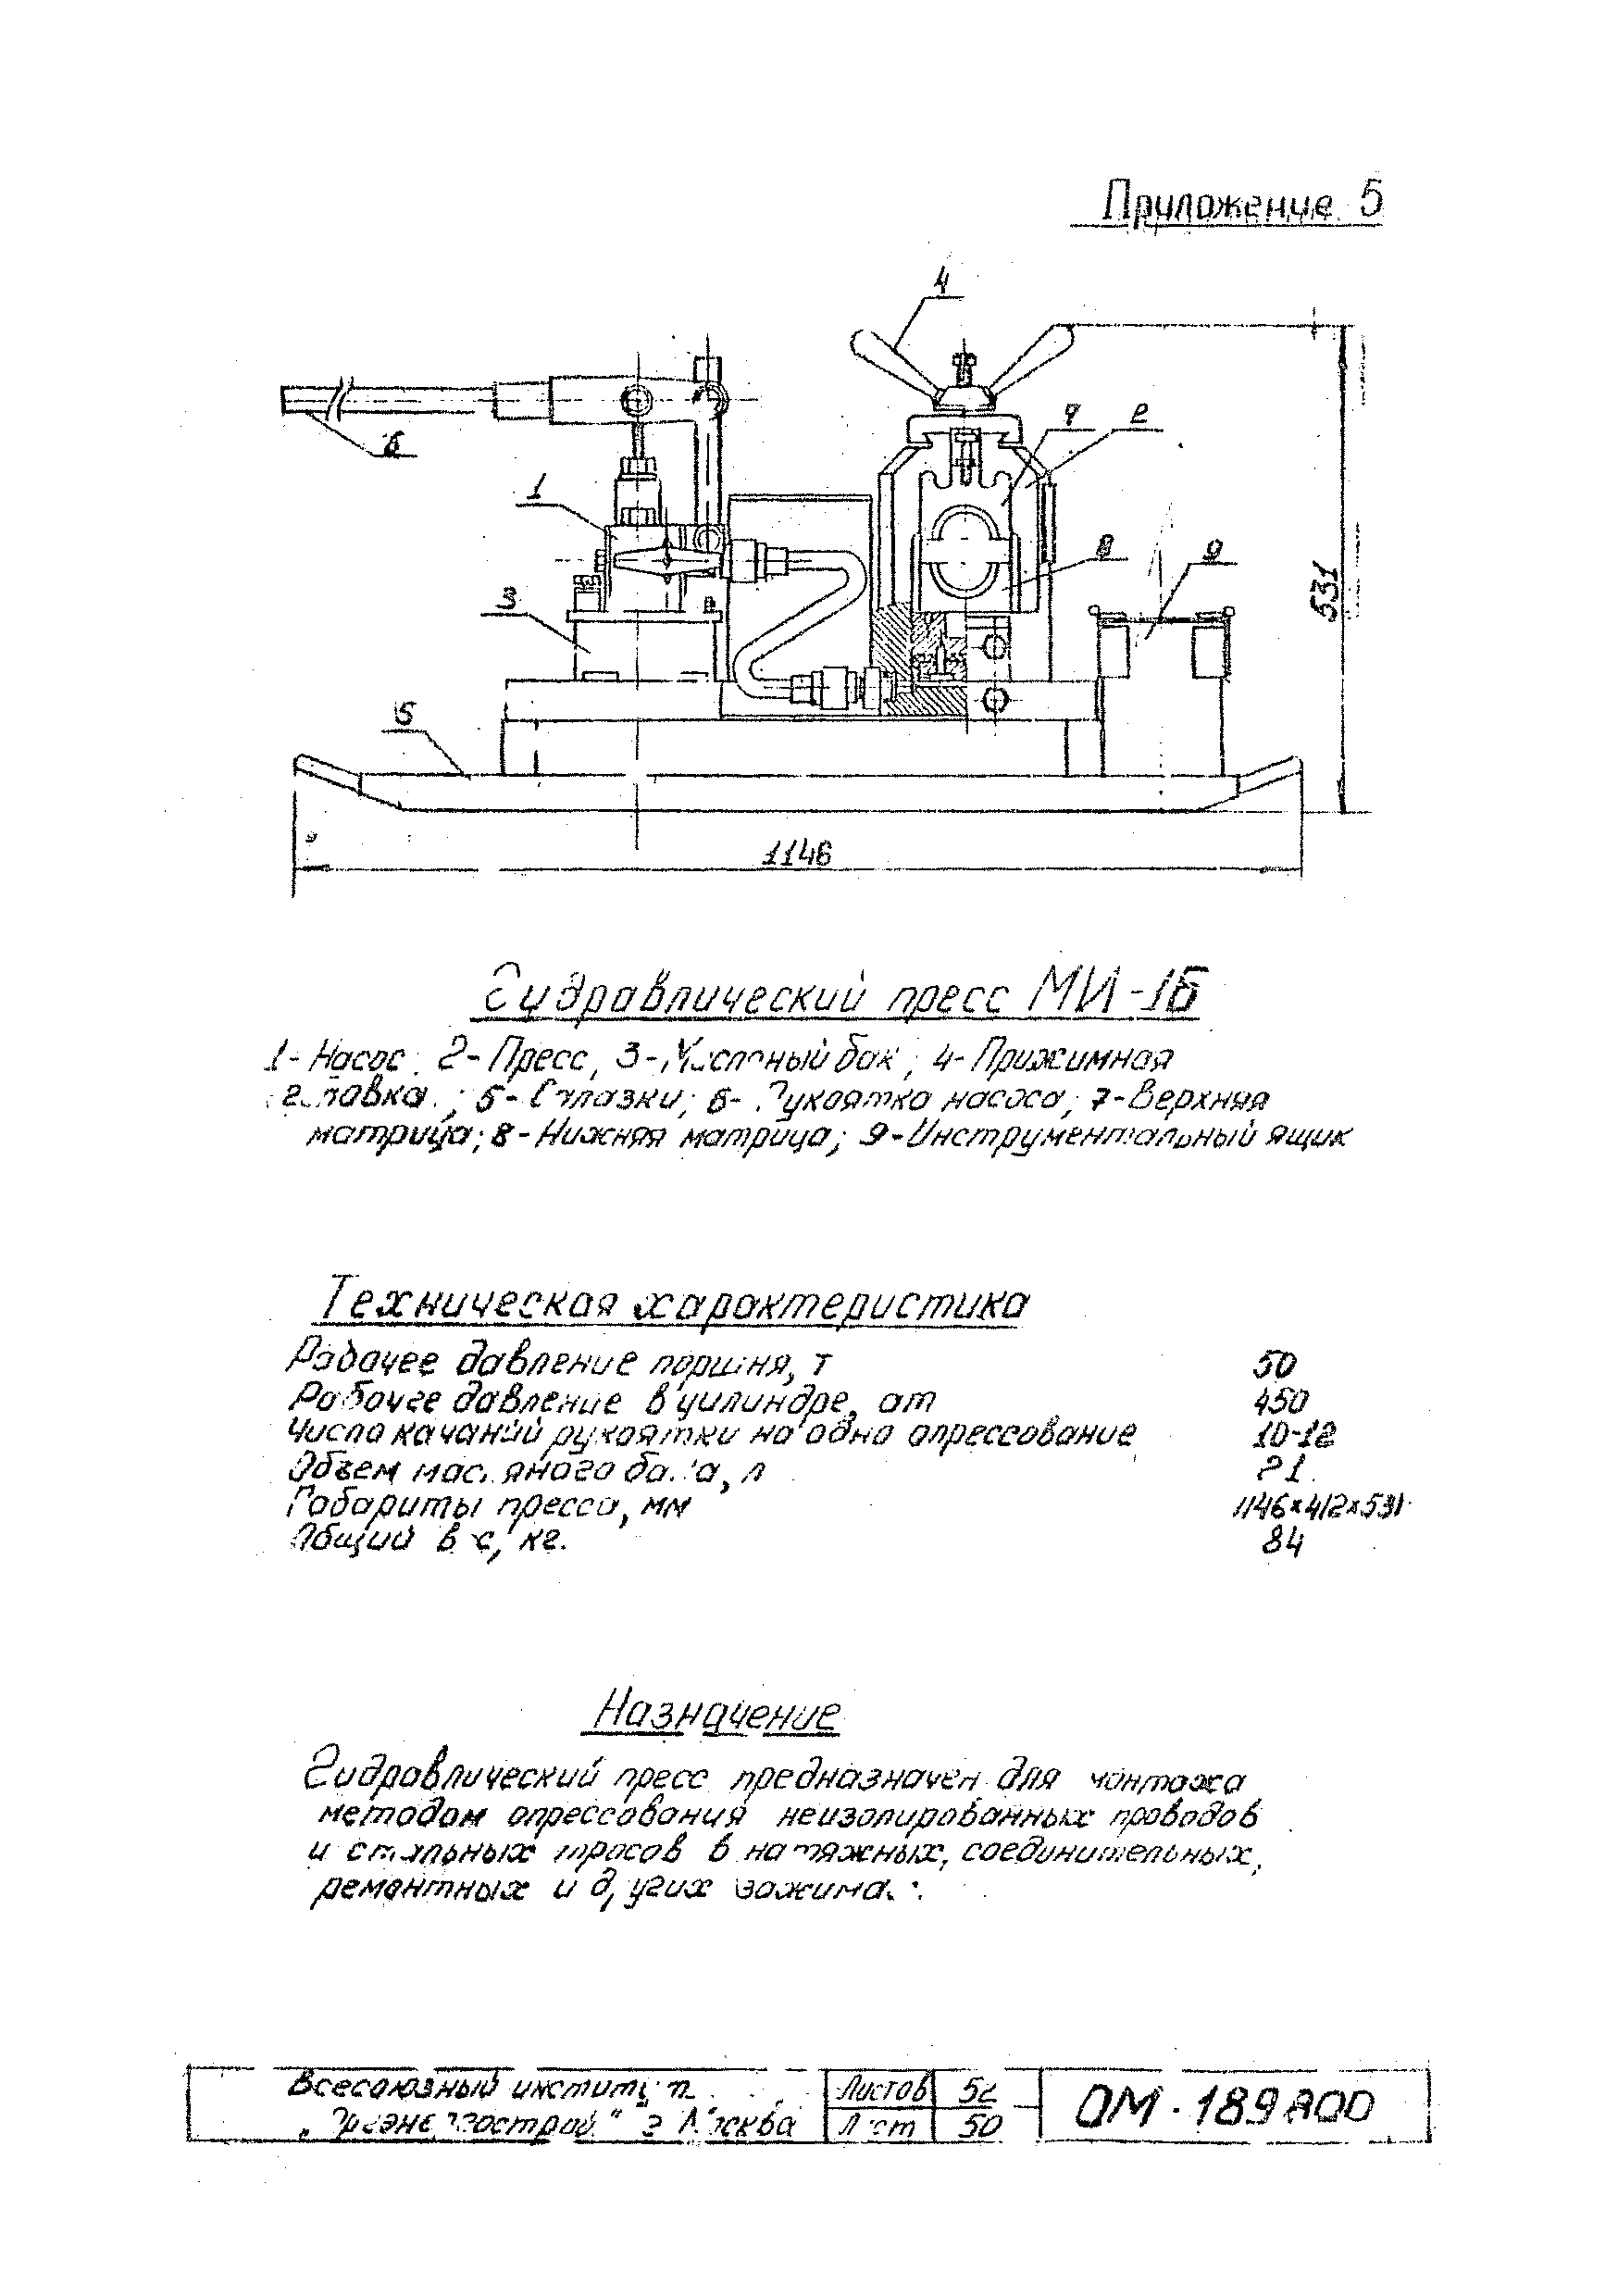 Приложение 5
4
7 2
6
1
8 9
3
531
5
1146
Гидравлический пресс МИ-1Б
1- Насос; 2- Пресс, 3- Масляный бак; 4- Прижимная
головка; 5- Салазки; 6- Рукоятка насоса; 7-Верхняя
матрица; 8-Нижняя матрица; 9-Инструментальный ящик
Техническая характеристика
Рабочее давление поршня, т 50
Рабочее давление в цилиндре, ат 450
Число качаний рукоятки на одно опрессование 10-12
Объем масляного бака, л
Габариты пресса, мм 1146×412×531
Общий вес, кг. 84
Назначение
Гидравлический пресс предназначен для монтажа
методом опрессования неизолированных проводов
и стальных тросов в натяжных, соединительных,
ремонтных и других зажимах.
Всесоюзный институт Листов 52 ОМ-189800
„Оргэнергострой" г. Москва Лист 50